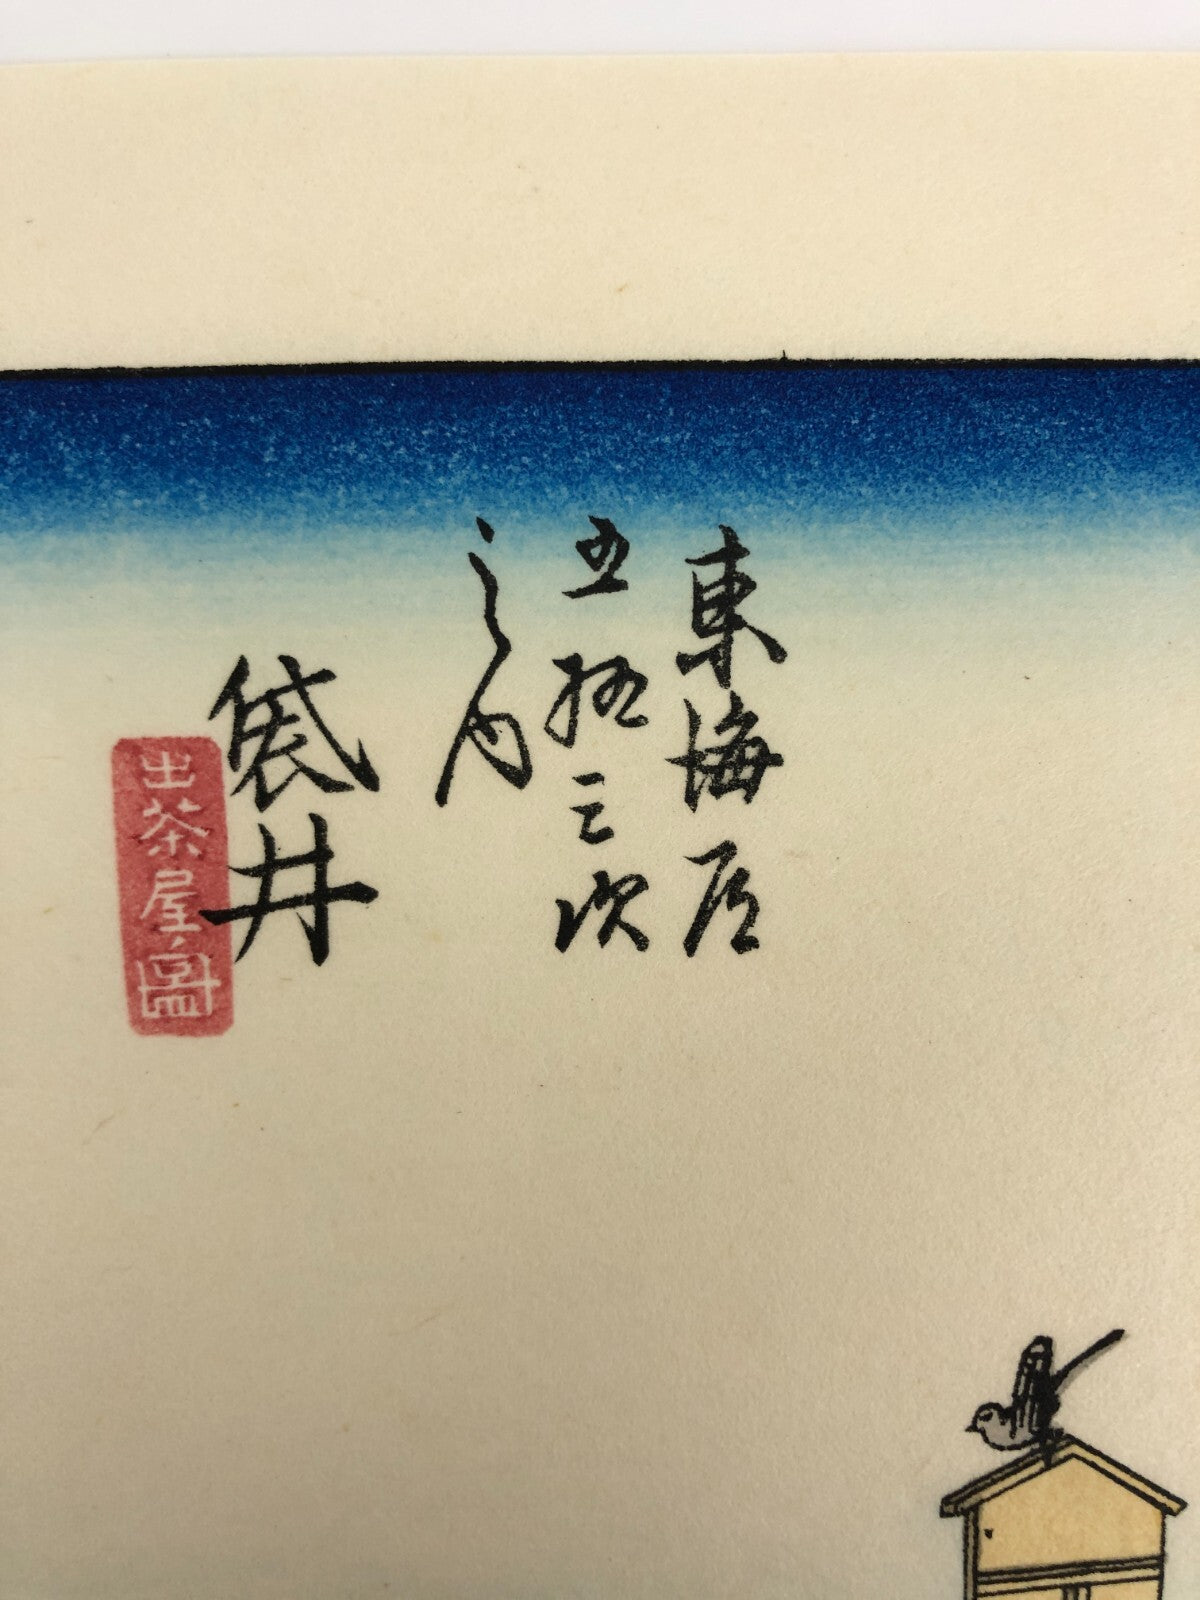 東海道
五拾三次
之内
袋井
出茶屋ノ圖